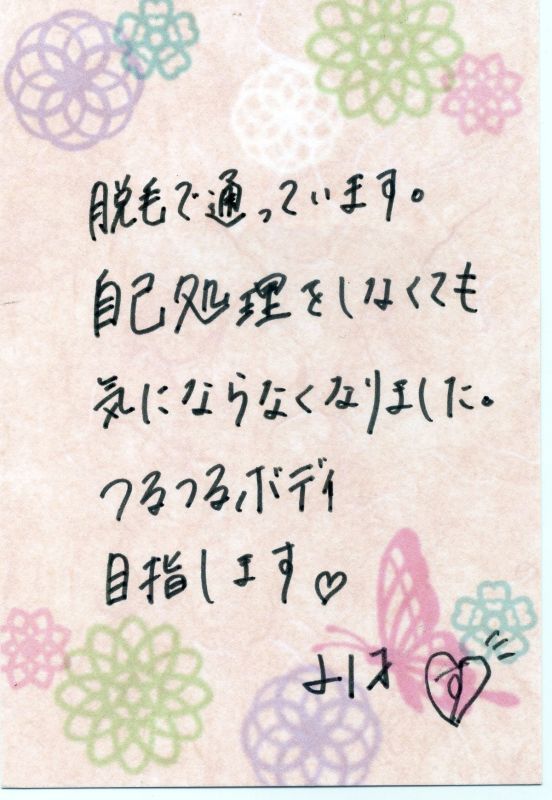 脱毛で通っています。
自己処理をしなくても
気にならなくなりました。
つるつるボディ
目指します♡
す